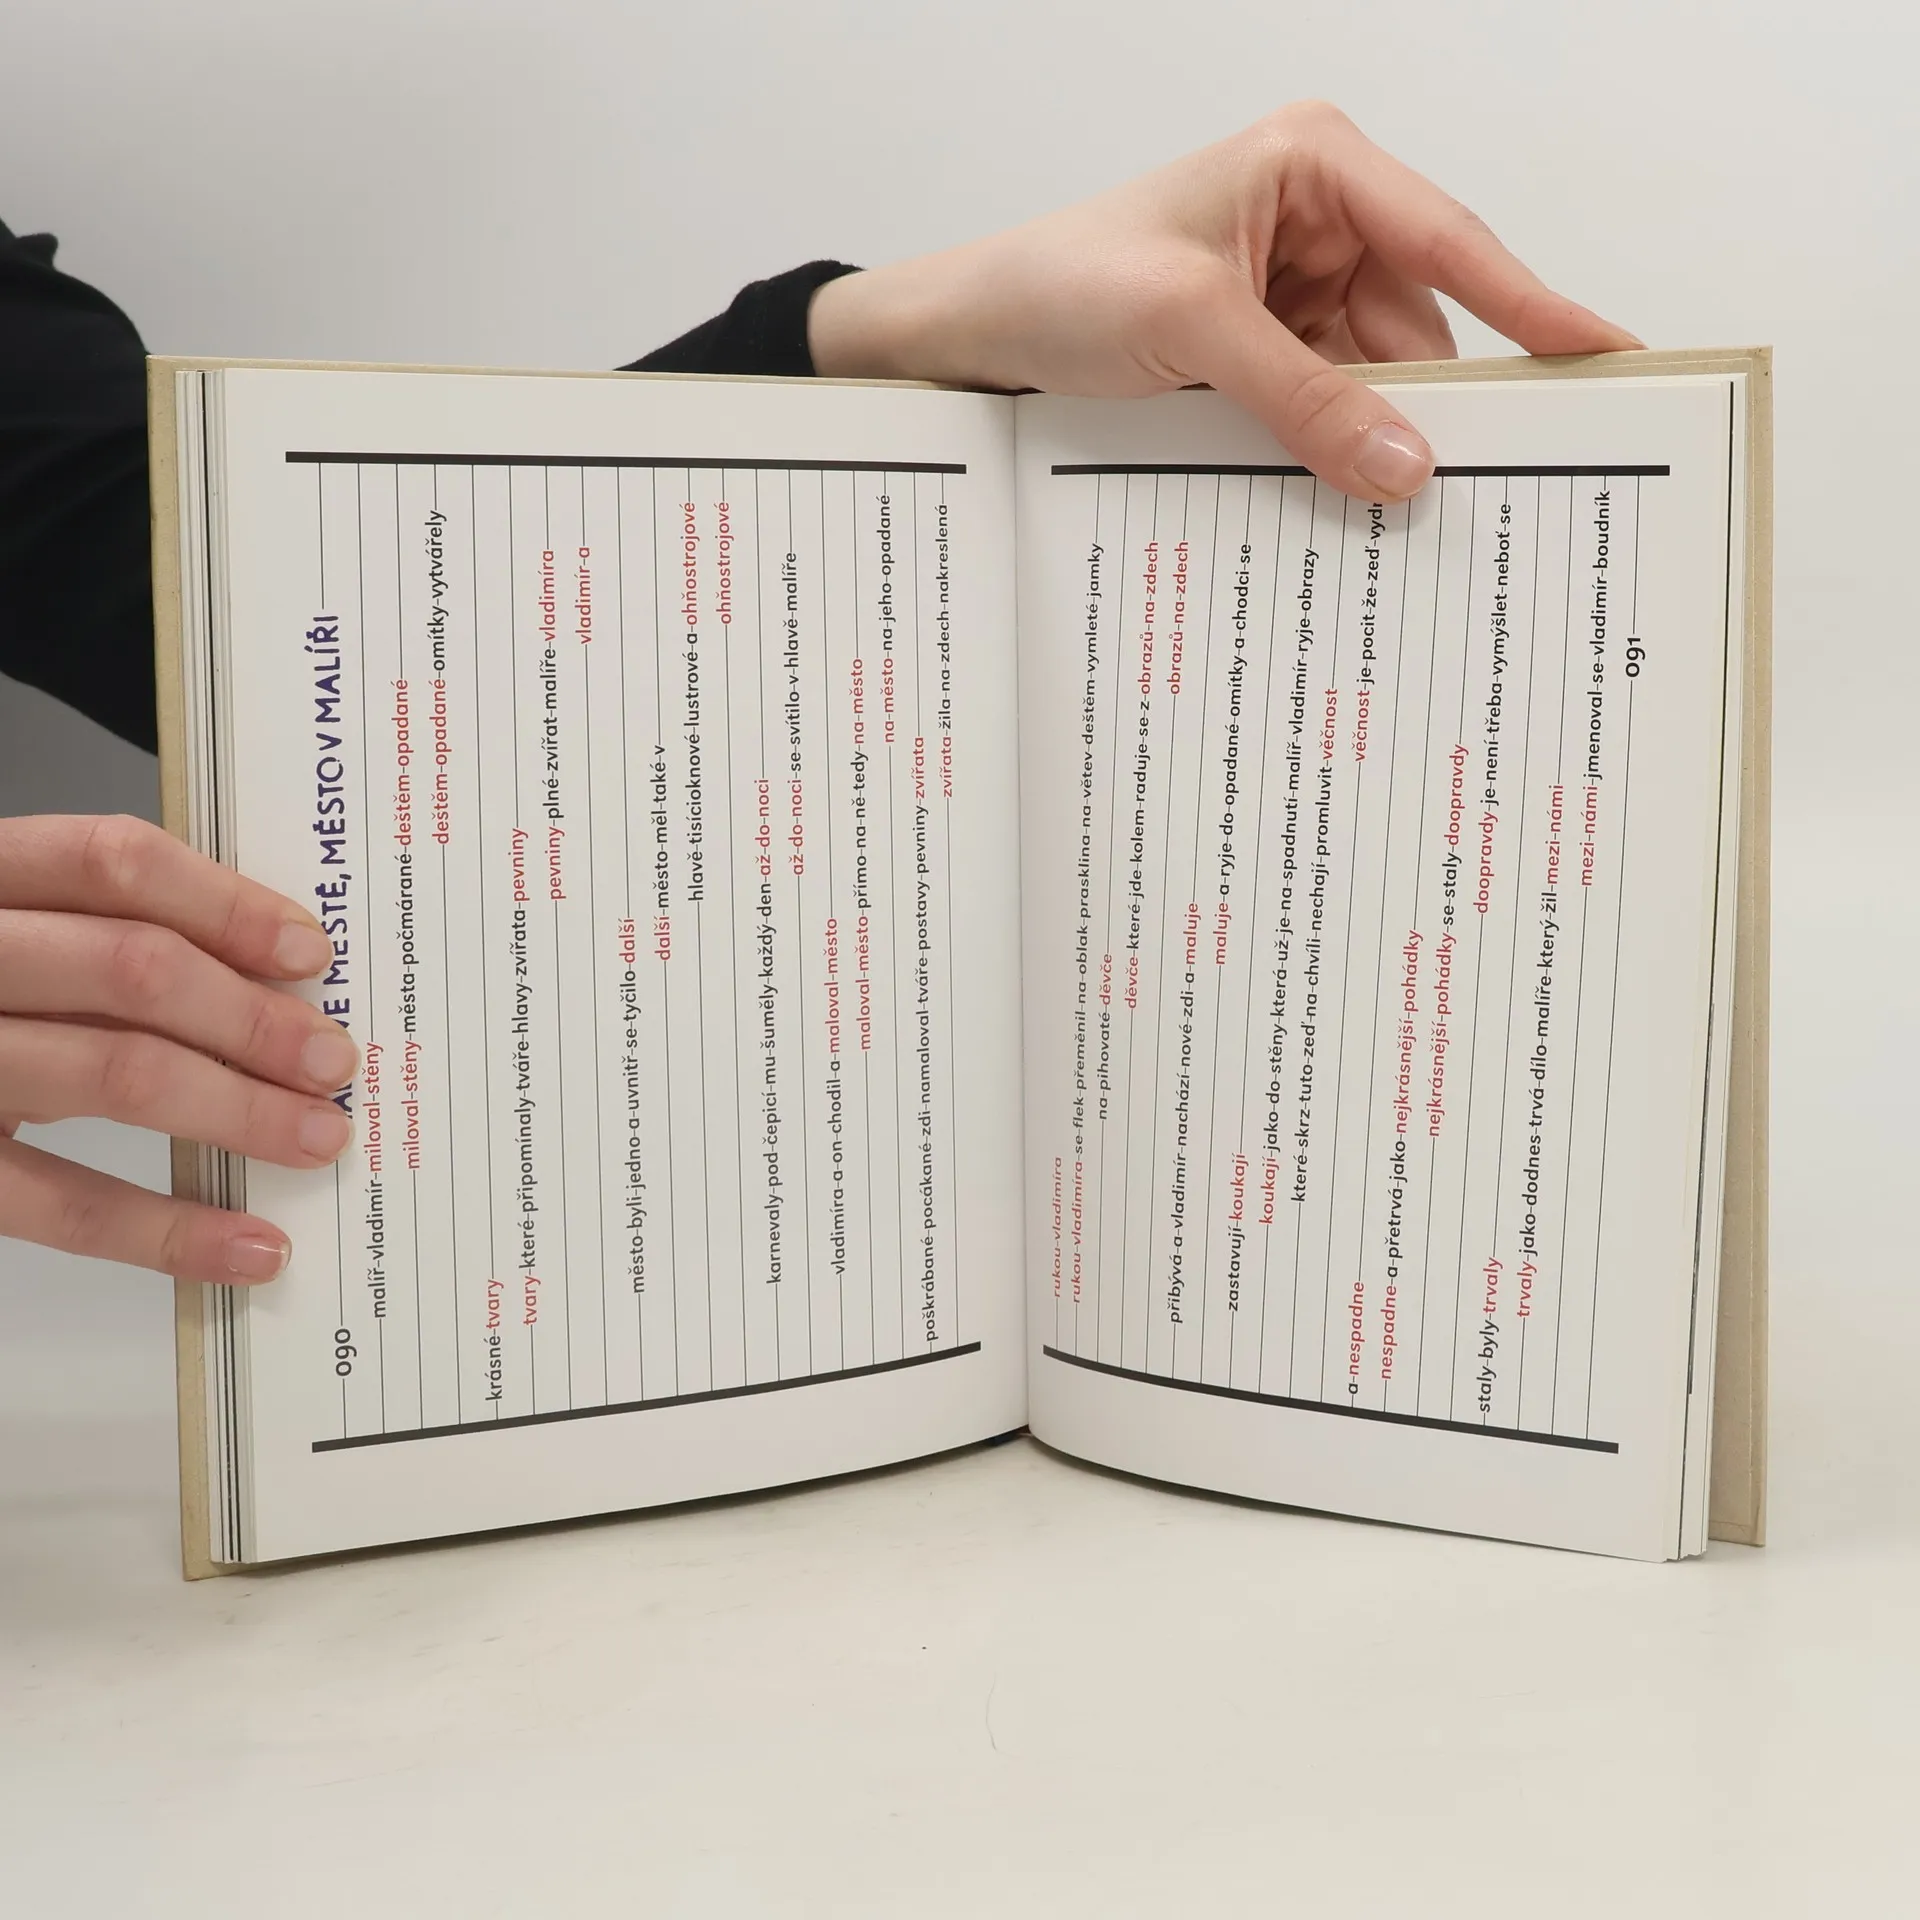 VE MĚSTĚ, MĚSTO V MALÍŘI
090
malíř-vladimír-miloval-stěny
miloval-stěny-města-počmárané-deštěm-opadané
deštěm-opadané-omítky-vytvářely
krásné-tvary
tvary-které-připomínaly-tváře-hlavy-zvířata-pevniny
pevniny-plné-zvířat-malíře-vladimíra
vladimír-a
město-byli-jedno-a-uvnitř-se-tyčilo-další
další-město-měl-také-v
hlavě-tisícioknové-lustrové-a-ohňostrojové
ohňostrojové
karnevaly-pod-čepicí-mu-šuměly-každý-den-až-do-noci
až-do-noci-se-svítilo-v-hlavě-malíře
vladimíra-a-on-chodil-a-maloval-město
maloval-město-přímo-na-ně-tedy-na-město
na-město-na-jeho-opadané
poškrábané-pocákané-zdi-namaloval-tváře-postavy-pevniny-zvířata
zvířata-žila-na-zdech-nakreslená
rukou-vladimíra
rukou-vladimíra-se-flek-přeměnil-na-oblak-prasklina-na-větev-deštěm-vymleté-jamky
na-pihovaté-děvče
děvče-které-jde-kolem-raduje-se-z-obrazů-na-zdech
obrazů-na-zdech
přibývá-a-vladimír-nachází-nové-zdi-a-maluje
maluje-a-ryje-do-opadané-omítky-a-chodci-se
zastavují-koukají
koukají-jako-do-stěny-která-už-je-na-spadnutí-malíř-vladimír-ryje-obrazy
které-skrz-tuto-zeď-na-chvíli-nechají-promluvit-věčnost
věčnost-je-pocit-že-zeď
a-nespadne
nespadne-a-přetrvá-jako-nejkrásnější-pohádky
nejkrásnější-pohádky-se-staly-doopravdy
doopravdy-je-není-třeba-vymýšlet-neboť-se
staly-byly-trvaly
trvaly-jako-dodnes-trvá-dílo-malíře-který-žil-mezi-námi
mezi-námi-jmenoval-se-vladimír-boudník
091